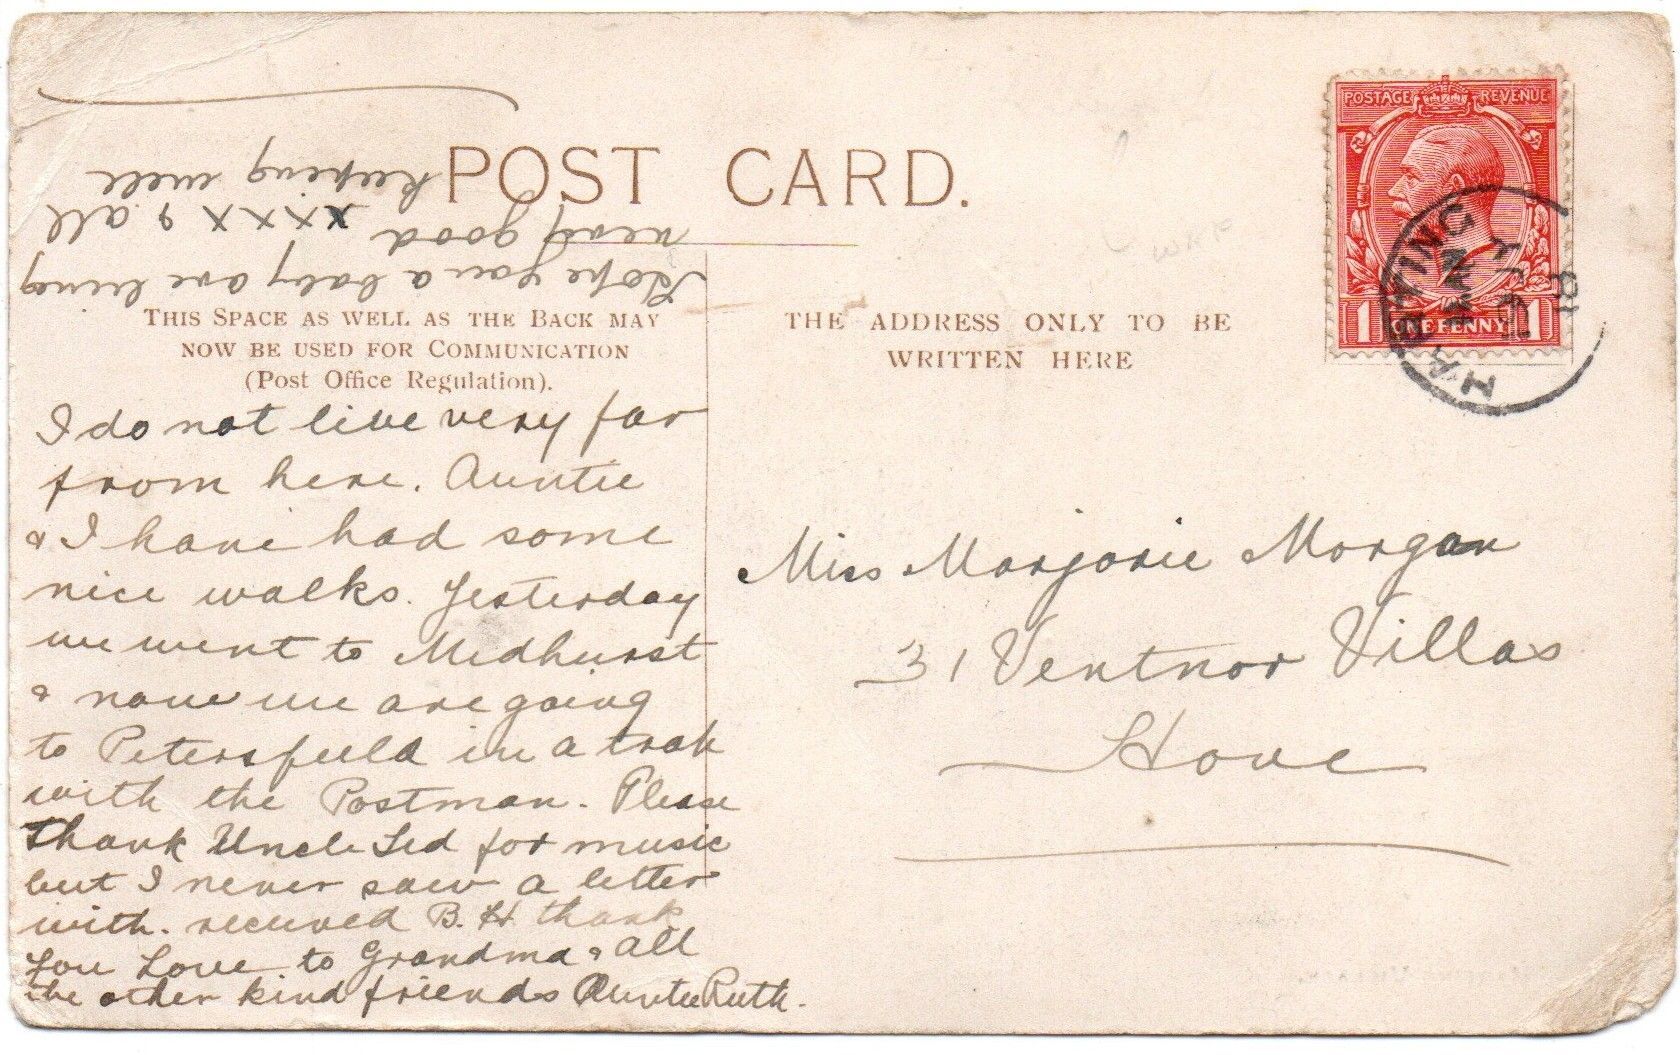 POST CARD.
THIS SPACE AS WELL AS THE BACK MAY
NOW BE USED FOR COMMUNICATION
(Post Office Regulation).
THE ADDRESS ONLY TO BE
WRITTEN HERE
POSTAGE REVENUE
1 ONE PENNY 1
HARTING
18
I do not live very far
from here. Auntie
& I have had some
nice walks. Yesterday
we went to Medhurst
& now we are going
to Petersfield in a trak
with the Postman. Please
thank Uncle Ted for music
but I never saw a letter
with. received B. H thank
you Love to Grandma & all
the other kind friends Auntie Ruth.
Hope you & baby are being
very good xxxx & all
keeping well
Miss Marjorie Morgan
31 Ventnor Villas
Hove